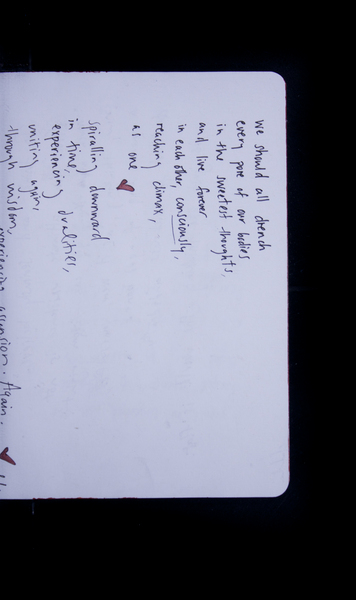 we should all drench
every pore of our bodies
in the sweetest thoughts,
and live forever
in each other, consciously,
reaching climax,
as one
spiralling downward
in time,
experiencing dualities,
uniting again,
through wisdom,
experiencing ascension. Again.